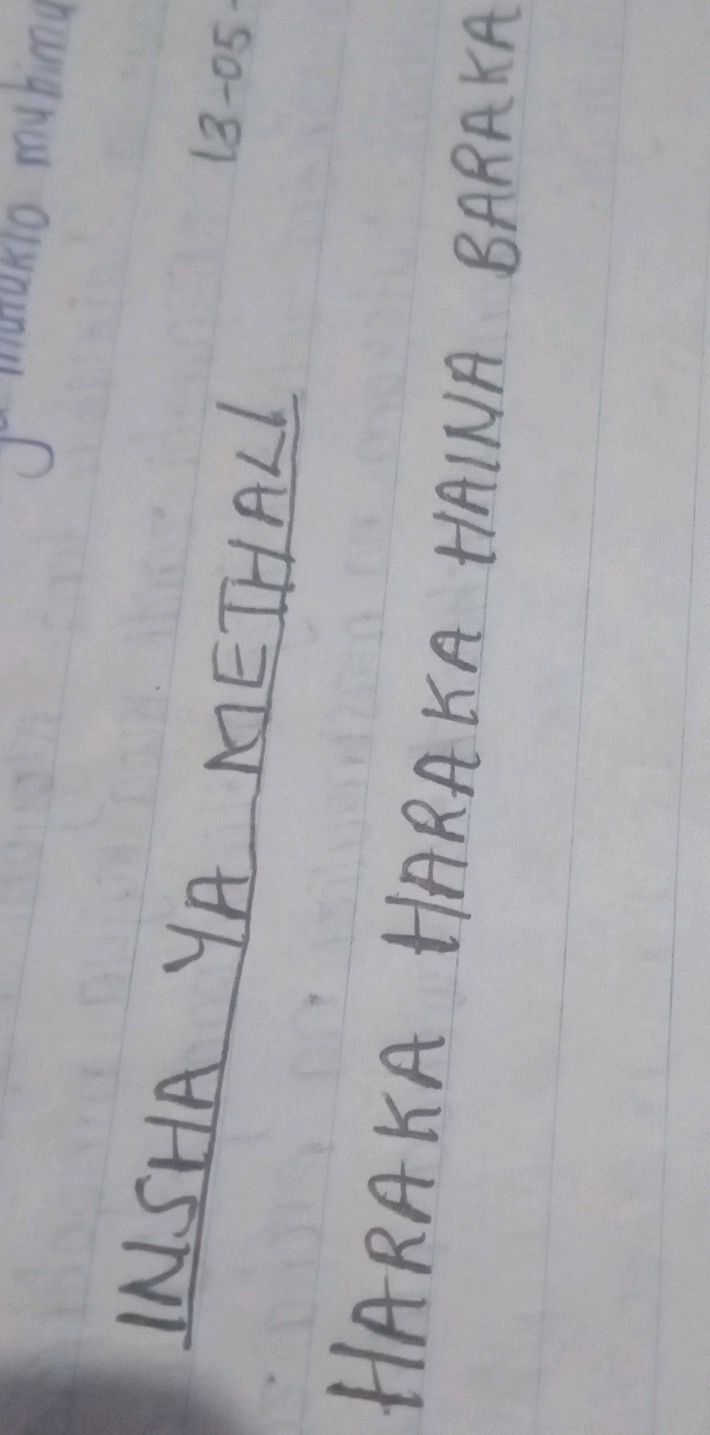 muhimu
13-05-
INSHA YA METHALI
HARAKA HARAKA HAINA BARAKA